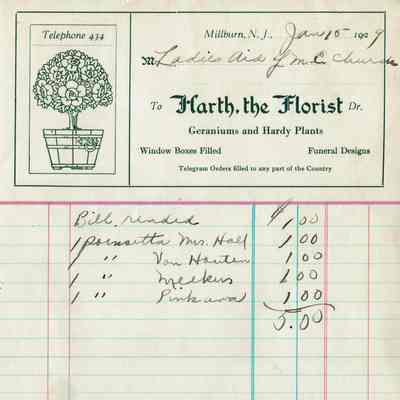 Telephone 434
Millburn, N. J., Jan 15 1929
M Ladies Aid of M.E. Church
To Harth, the Florist Dr.
Geraniums and Hardy Plants
Window Boxes Filled Funeral Designs
Telegram Orders filled to any part of the Country
Bill rended $1.00
1 poinsetta Mrs. Hall 1 00
1 " Van Houten 1 00
1 " Meekers 1 00
1 " 1 00
5.00